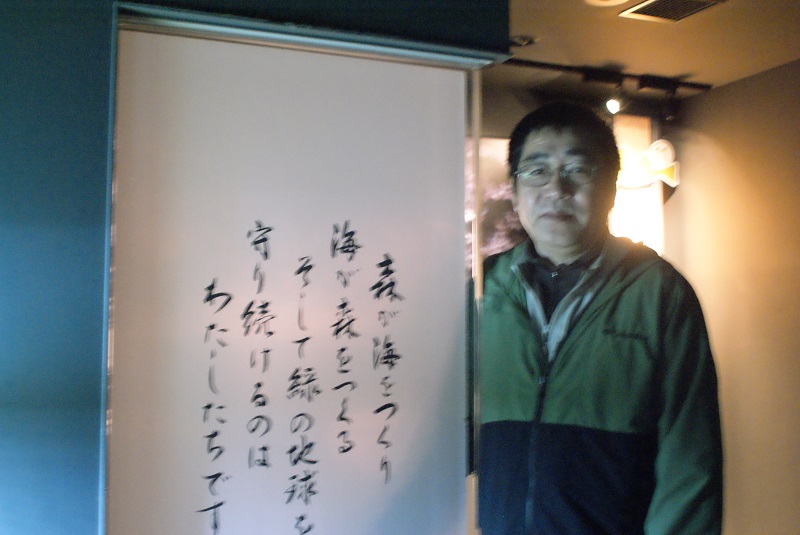 森が海をつくり
海が森をつくる
そして緑の地球を
守り続けるのは
わたしたちです